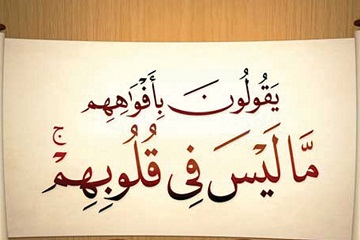 يَقُولُونَ بِأَفْوَٰهِهِم
مَّا لَيْسَ فِى قُلُوبِهِمْ ۚ